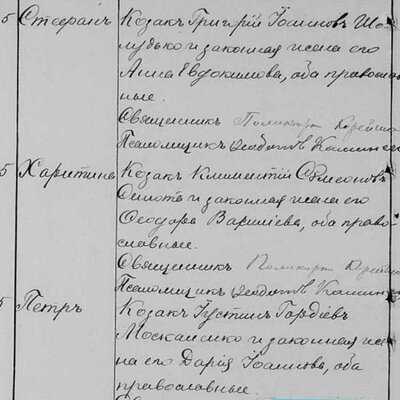 5 Стефанъ Козакъ Григорій Іоанновъ Шо-
мудько и законная жена его
Анна Евдокимова, оба православ-
ные.
Священникъ Поликарпъ
Псаломщикъ Ѳеодотъ
5 Харитина Козакъ Климентій Симеоновъ
и законная жена его
Ѳеодора Василіева, оба право-
славные.
Священникъ Поликарпъ
Псаломщикъ Ѳеодотъ
5 Петръ Козакъ Іустинъ Гордіевъ
Москаленко и законная же-
на его Дарія Іоаннова, оба
православные.